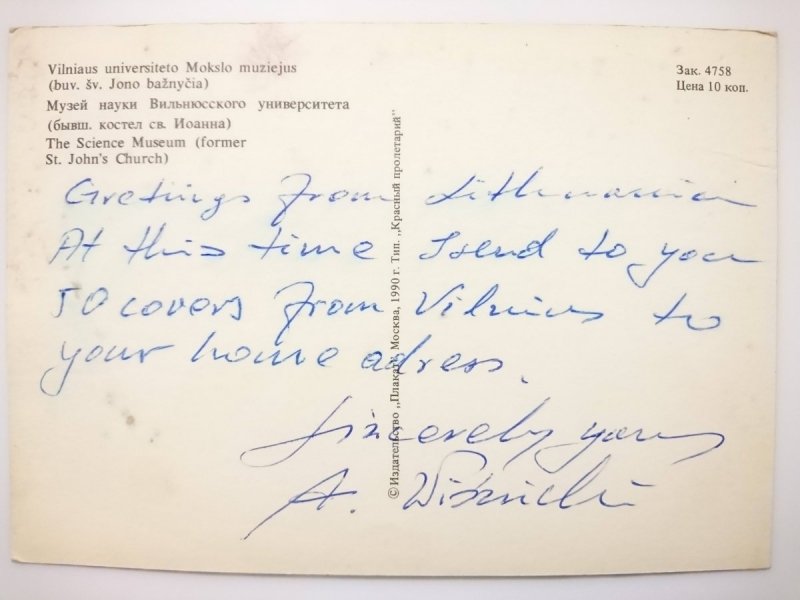 Vilniaus universiteto Mokslo muziejus
(buv. šv. Jono bažnyčia)
Музей науки Вильнюсского университета
(бывш. костел св. Иоанна)
The Science Museum (former
St. John's Church)
Зак. 4758
Цена 10 коп.
© Издательство „Плакат", Москва, 1990 г. Тип. „Красный пролетарий"
Gretings from Lithuania
At this time I send to you
50 covers from Vilnius to
your home adress.
Sincerely yours
A.